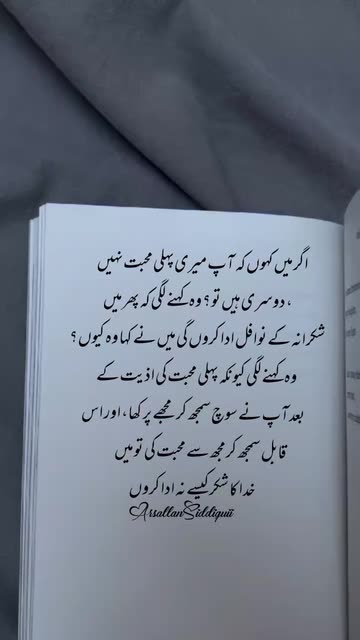 اگر میں کہوں کہ آپ میری پہلی محبت نہیں
، دوسری ہیں تو؟ وہ کہنے لگی کہ پھر میں
شکرانہ کے نوافل ادا کروں گی میں نے کہا وہ کیوں؟
وہ کہنے لگی کیونکہ پہلی محبت کی اذیت کے
بعد آپ نے سوچ سمجھ کر مجھے پرکھا، اور اس
قابل سمجھ کر مجھ سے محبت کی تو میں
خدا کا شکر کیسے نہ ادا کروں
ArsallanSiddiquii